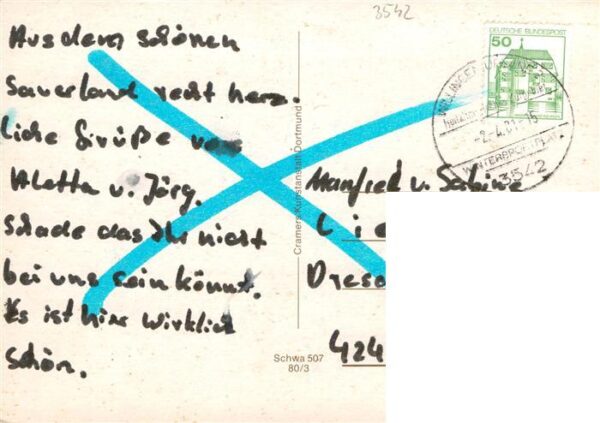 3542
Aus dem schönen
Sauerland recht herz-
liche Grüße von
Aletta u. Jörg.
Schade das Ihr nicht
bei uns sein könnt.
Es ist hier wirklich
schön.
Cramers Kunstanstalt Dortmund
Schwa 507
80/3
DEUTSCHE BUNDESPOST
50
WILLINGEN
-15
WINTERSPORTPLATZ
3542
Manfred u. Sabine
Lie
Dres
424